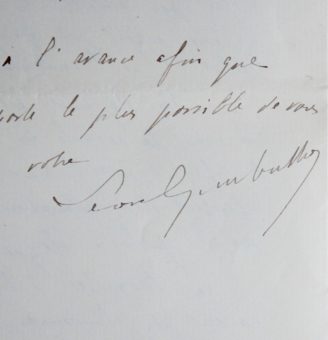 à l'avance afin que
porte le plus possible de vous
votre
Léon Gambetta